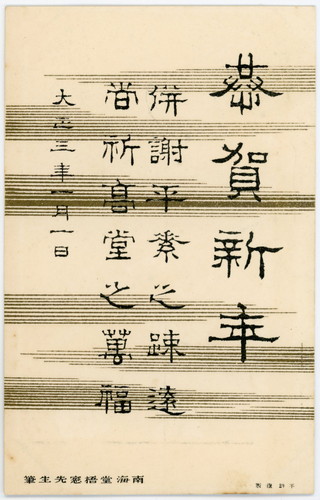 恭賀新年
併謝平素之疎遠
尚祈高堂之萬福
大正三年一月一日
南海堂梧窓先生筆